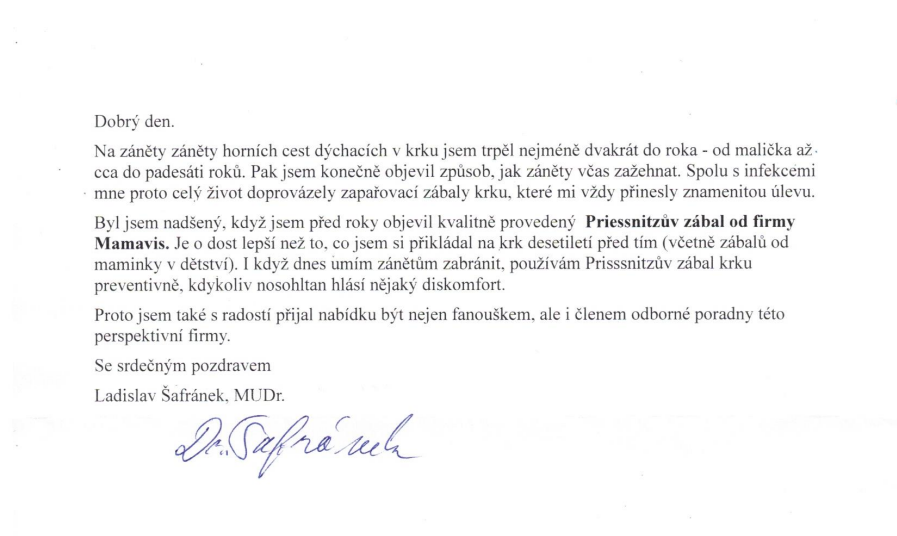 Dobrý den.
Na záněty záněty horních cest dýchacích v krku jsem trpěl nejméně dvakrát do roka - od malička až
cca do padesáti roků. Pak jsem konečně objevil způsob, jak záněty včas zažehnat. Spolu s infekcemi
mne proto celý život doprovázely zapařovací zábaly krku, které mi vždy přinesly znamenitou úlevu.
Byl jsem nadšený, když jsem před roky objevil kvalitně provedený Priessnitzův zábal od firmy
Mamavis. Je o dost lepší než to, co jsem si přikládal na krk desetiletí před tím (včetně zábalů od
maminky v dětství). I když dnes umím zánětům zabránit, používám Prisssnitzův zábal krku
preventivně, kdykoliv nosohltan hlásí nějaký diskomfort.
Proto jsem také s radostí přijal nabídku být nejen fanouškem, ale i členem odborné poradny této
perspektivní firmy.
Se srdečným pozdravem
Ladislav Šafránek, MUDr.
Dr. Šafránek